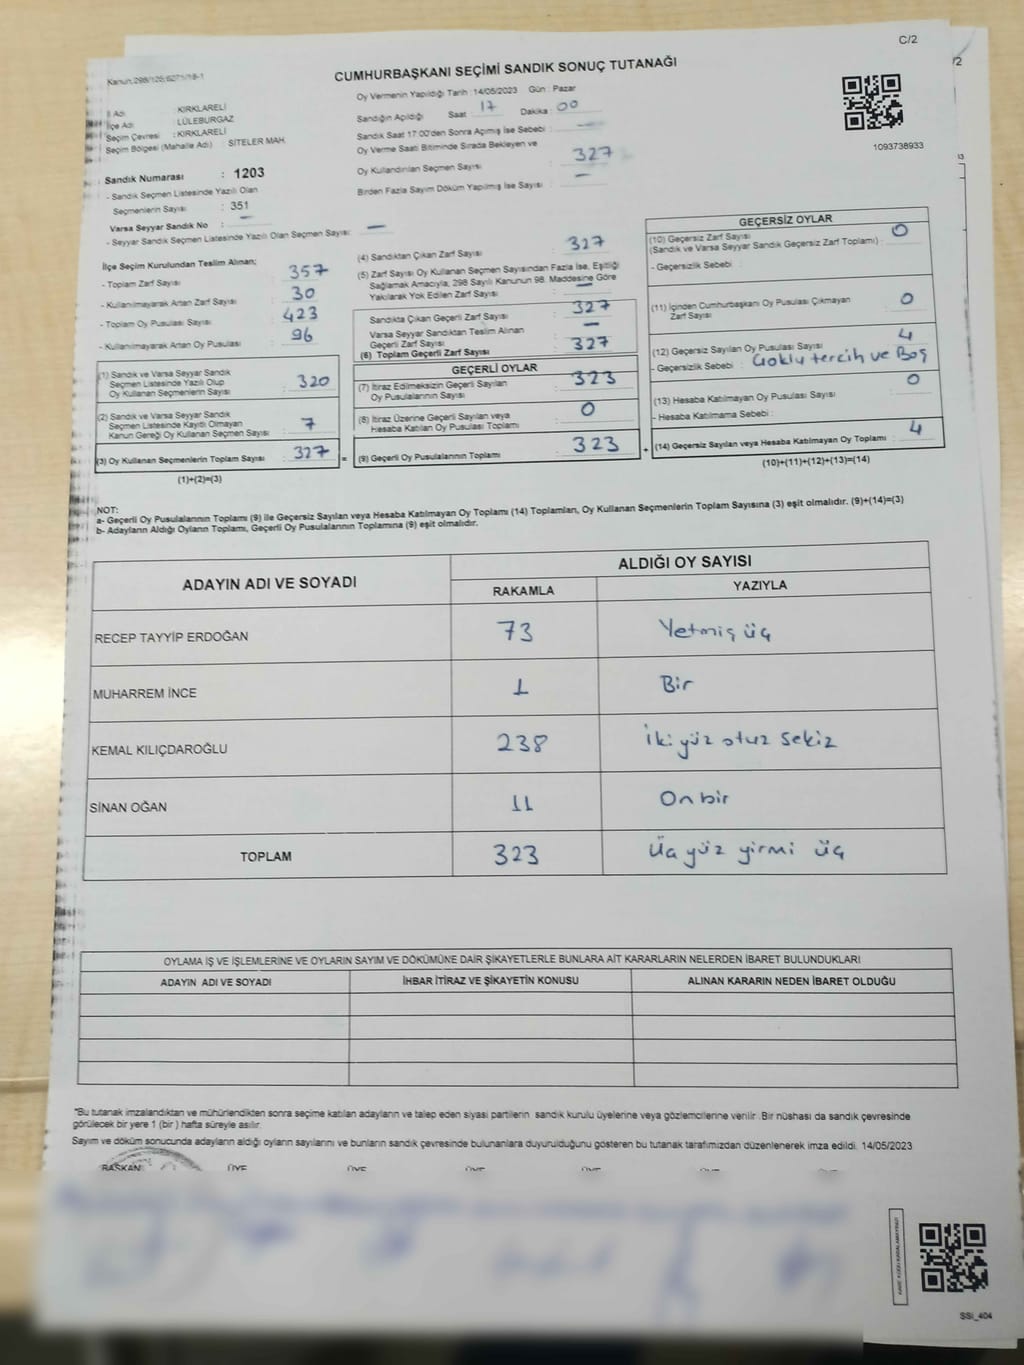 C/2
/2
Kanun:298/125/6271/18-1
CUMHURBAŞKANI SEÇİMİ SANDIK SONUÇ TUTANAĞI
İl Adı : KIRKLARELİ
İlçe Adı : LÜLEBURGAZ
Seçim Çevresi : KIRKLARELİ
Seçim Bölgesi (Mahalle Adı) : SİTELER MAH.
Oy Vermenin Yapıldığı Tarih : 14/05/2023 Gün : Pazar
Sandığın Açıldığı Saat : 17 Dakika : 00
Sandık Saat 17:00'den Sonra Açımış İse Sebebi : —
Oy Verme Saati Bitiminde Sırada Bekleyen ve
Oy Kullandırılan Seçmen Sayısı : 327
Birden Fazla Sayım Döküm Yapılmış İse Sayısı : —
1093738933
Sandık Numarası : 1203
- Sandık Seçmen Listesinde Yazılı Olan
Seçmenlerin Sayısı : 351
Varsa Seyyar Sandık No : —
- Seyyar Sandık Seçmen Listesinde Yazılı Olan Seçmen Sayısı: —
İlçe Seçim Kurulundan Teslim Alınan;
- Toplam Zarf Sayısı : 357
- Kullanılmayarak Artan Zarf Sayısı : 30
- Toplam Oy Pusulası Sayısı : 423
- Kullanılmayarak Artan Oy Pusulası : 96
(1) Sandık ve Varsa Seyyar Sandık
Seçmen Listesinde Yazılı Olup
Oy Kullanan Seçmenlerin Sayısı : 320
(2) Sandık ve Varsa Seyyar Sandık
Seçmen Listesinde Kayıtlı Olmayan
Kanun Gereği Oy Kullanan Seçmen Sayısı : 7
(3) Oy Kullanan Seçmenlerin Toplam Sayısı : 327
(1)+(2)=(3)
(4) Sandıktan Çıkan Zarf Sayısı : 327
(5) Zarf Sayısı Oy Kullanan Seçmen Sayısından Fazla İse, Eşitliği
Sağlamak Amacıyla; 298 Sayılı Kanunun 98. Maddesine Göre
Yakılarak Yok Edilen Zarf Sayısı : —
Sandıkta Çıkan Geçerli Zarf Sayısı : 327
Varsa Seyyar Sandıktan Teslim Alınan
Geçerli Zarf Sayısı : —
(6) Toplam Geçerli Zarf Sayısı : 327
GEÇERLİ OYLAR
(7) İtiraz Edilmeksizin Geçerli Sayılan
Oy Pusulalarının Sayısı : 323
(8) İtiraz Üzerine Geçerli Sayılan veya
Hesaba Katılan Oy Pusulası Toplamı : 0
(9) Geçerli Oy Pusulalarının Toplamı : 323
GEÇERSİZ OYLAR
(10) Geçersiz Zarf Sayısı
(Sandık ve Varsa Seyyar Sandık Geçersiz Zarf Toplamı) : 0
- Geçersizlik Sebebi :
(11) İçinden Cumhurbaşkanı Oy Pusulası Çıkmayan
Zarf Sayısı : 0
(12) Geçersiz Sayılan Oy Pusulası Sayısı : 4
- Geçersizlik Sebebi : Çoklu tercih ve Boş
(13) Hesaba Katılmayan Oy Pusulası Sayısı : 0
- Hesaba Katılmama Sebebi :
(14) Geçersiz Sayılan veya Hesaba Katılmayan Oy Toplamı : 4
(10)+(11)+(12)+(13)=(14)
NOT:
a- Geçerli Oy Pusulalarının Toplamı (9) ile Geçersiz Sayılan veya Hesaba Katılmayan Oy Toplamı (14) Toplamları, Oy Kullanan Seçmenlerin Toplam Sayısına (3) eşit olmalıdır. (9)+(14)=(3)
b- Adayların Aldığı Oyların Toplamı, Geçerli Oy Pusulalarının Toplamına (9) eşit olmalıdır.
ADAYIN ADI VE SOYADI ALDIĞI OY SAYISI
RAKAMLA YAZIYLA
RECEP TAYYİP ERDOĞAN 73 Yetmiş üç
MUHARREM İNCE 1 Bir
KEMAL KILIÇDAROĞLU 238 İki yüz otuz sekiz
SİNAN OĞAN 11 On bir
TOPLAM 323 Üç yüz yirmi üç
OYLAMA İŞ VE İŞLEMLERİNE VE OYLARIN SAYIM VE DÖKÜMÜNE DAİR ŞİKAYETLERLE BUNLARA AİT KARARLARIN NELERDEN İBARET BULUNDUKLARI
ADAYIN ADI VE SOYADI İHBAR İTİRAZ VE ŞİKAYETİN KONUSU ALINAN KARARIN NEDEN İBARET OLDUĞU
*Bu tutanak imzalandıktan ve mühürlendikten sonra seçime katılan adayların ve talep eden siyasi partilerin sandık kurulu üyelerine veya gözlemcilerine verilir. Bir nüshası da sandık çevresinde
görülecek bir yere 1 (bir ) hafta süreyle asılır.
Sayım ve döküm sonucunda adayların aldığı oyların sayılarını ve bunların sandık çevresinde bulunanlara duyurulduğunu gösteren bu tutanak tarafımızdan düzenlenerek imza edildi. 14/05/2023
BAŞKAN ÜYE ÜYE ÜYE ÜYE ÜYE ÜYE
SSI_404